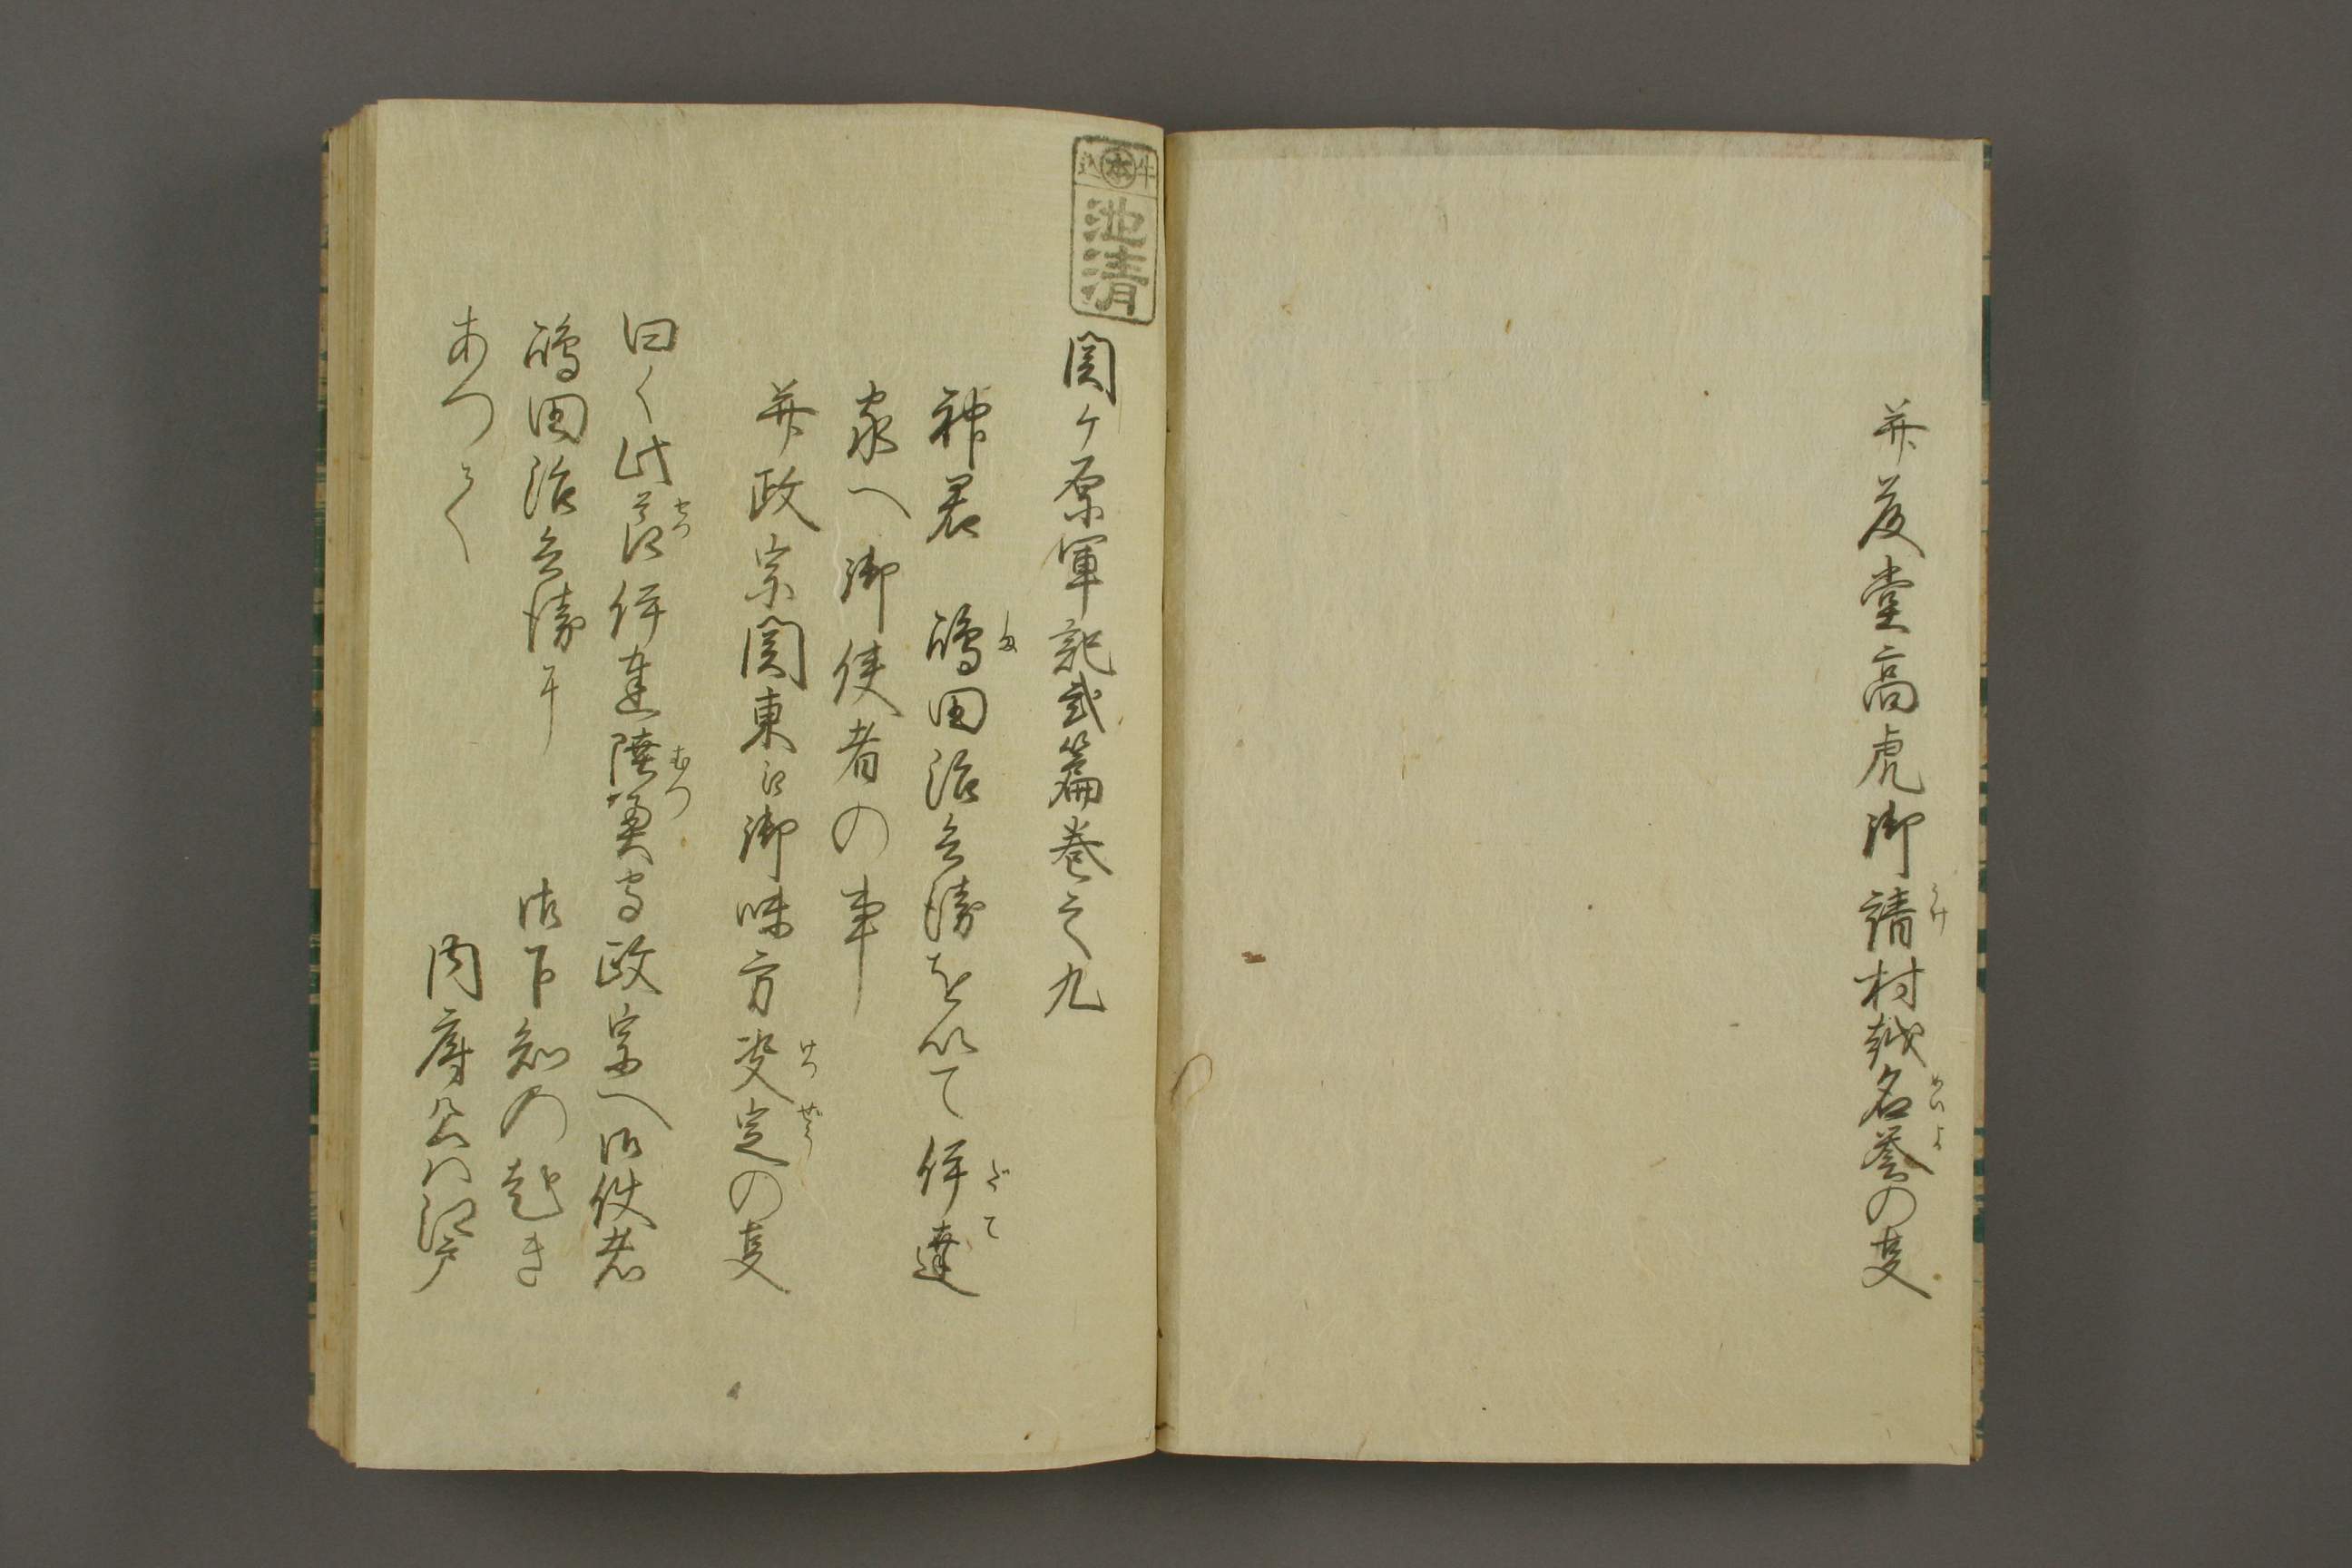 并藤堂高虎御請村越名誉の叓
牛込
本
池清
関ヶ原軍記弐篇巻之九
神君　嶋田治兵衛を以て伊達
家へ御使者の事
并政宗関東江御味方决定の叓
曰く此節伊達陸奥守政宗へ御使者
嶋田治兵衛
御下知の趣き
あつく
内府公ハ江戸